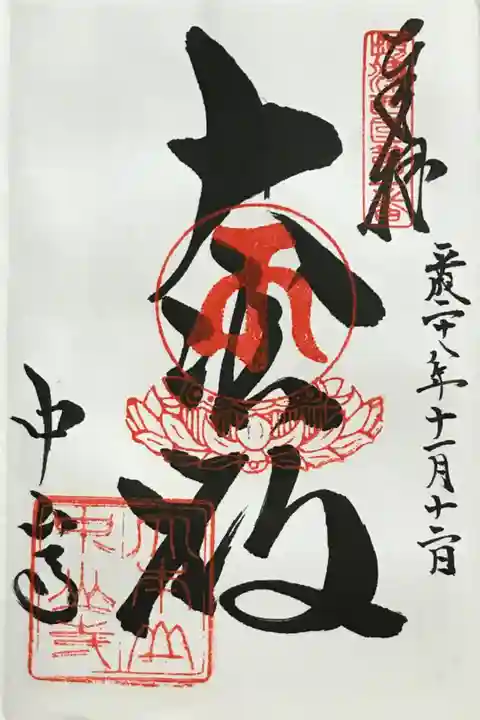 奉拝
平成二十八年十一月十二日
大悲殿
中山寺
大本山
中山寺